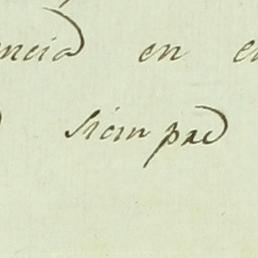 ncia en e
siempre